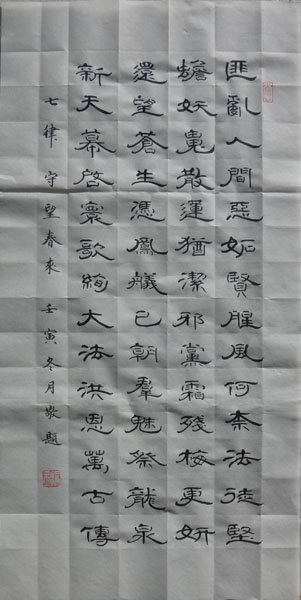 匪亂人間惡妬賢腥風何柰法徒堅
蟾妖散蓮猶潔邪黨霜殘梅更妍
還望蒼生憑鳳艤已朝羣魅祭龍泉
新天幕啓寰歌絢大法洪恩萬古傳
七律 守望春來 壬寅冬月敬題